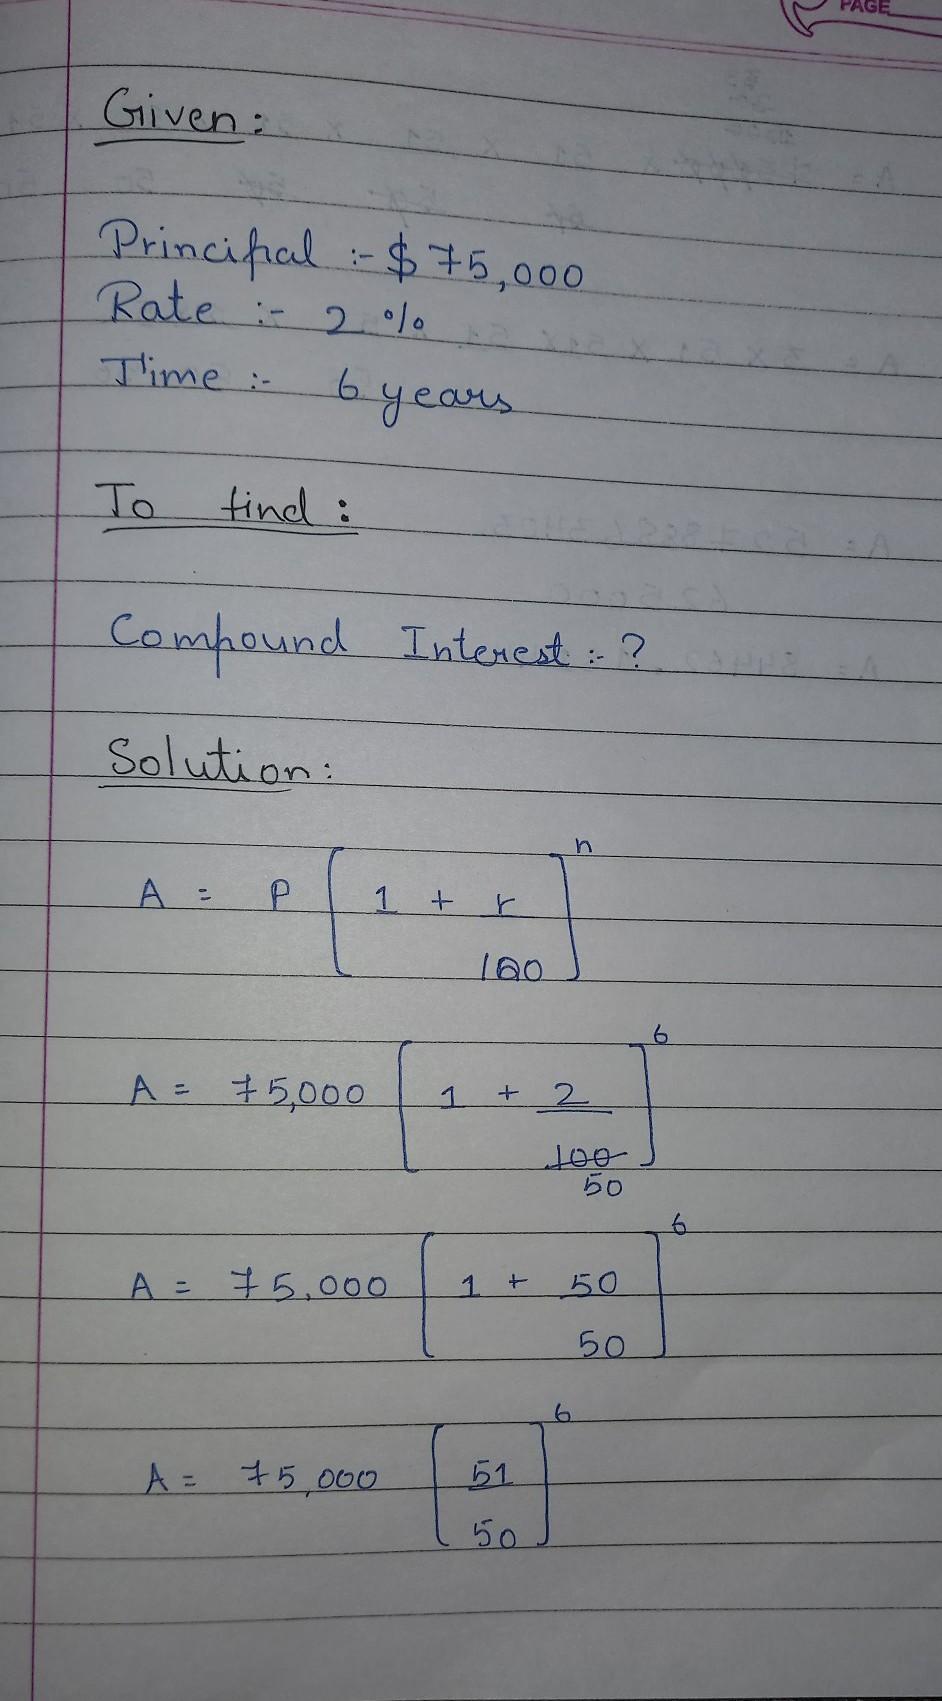 PAGE
Given:
Principal :- $75,000
Rate :- 2 %
Time :- 6 years
To find :
Compound Interest :- ?
Solution:
n
A = P [ 1 + r
100 ]
6
A = 75,000 [ 1 + 2
100 ]
50
6
A = 75,000 [ 1 + 50
50 ]
6
A = 75,000 [ 51
50 ]